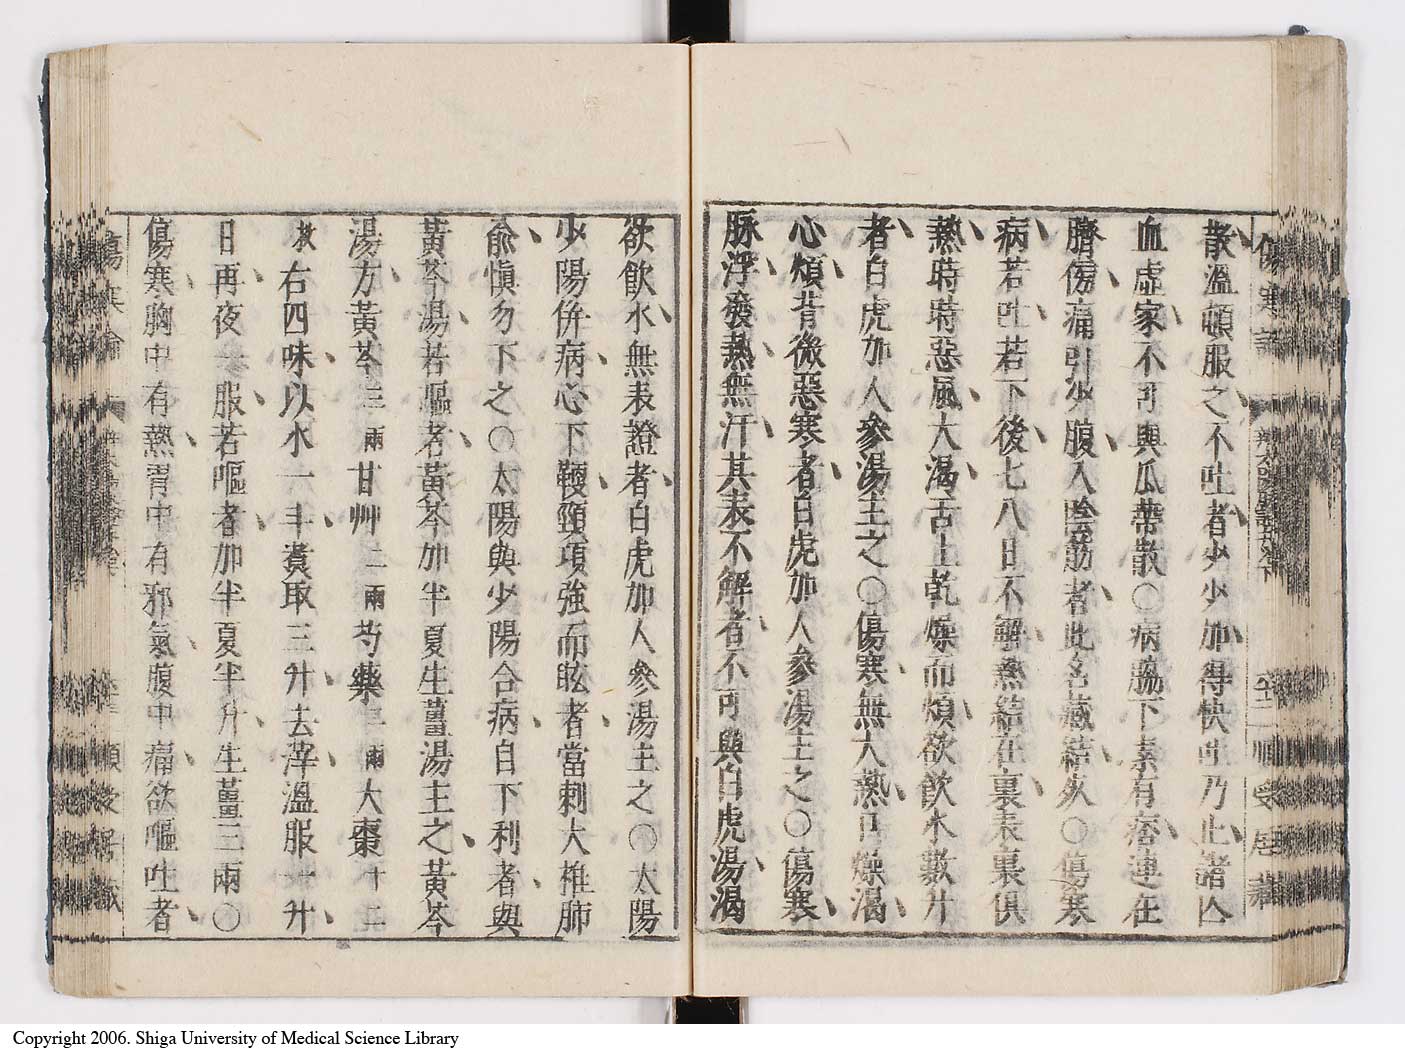 散溫頓服之不吐者少少加得快吐乃止諸亾
血虛家不可與瓜蔕散○病脇下素有痞連在
臍傍痛引少腹入陰筋者此名藏結灰○傷寒
病若吐若下後七八日不解熱結在裏表裏俱
熱時時惡風大渴舌上乾燥而煩欲飲水數升
者白虎加人參湯主之○傷寒無大熱口燥渴
心煩背微惡寒者白虎加人參湯主之○傷寒
脉浮發熱無汗其表不解者不可與白虎湯渴
欲飲水無表證者白虎加人參湯主之○太陽
少陽併病心下鞕頸項強而眩者當刺大椎肺
兪愼勿下之○太陽與少陽合病自下利者與
黃芩湯若嘔者黃芩加半夏生薑湯主之黃芩
湯方黃芩三兩甘艸二兩芍藥二兩大棗十二
枚右四味以水一斗煑取三升去滓溫服一升
日再夜一服若嘔者加半夏半升生薑三兩○
傷寒胸中有熱胃中有邪氣腹中痛欲嘔吐者
傷寒論
Copyright 2006. Shiga University of Medical Science Library